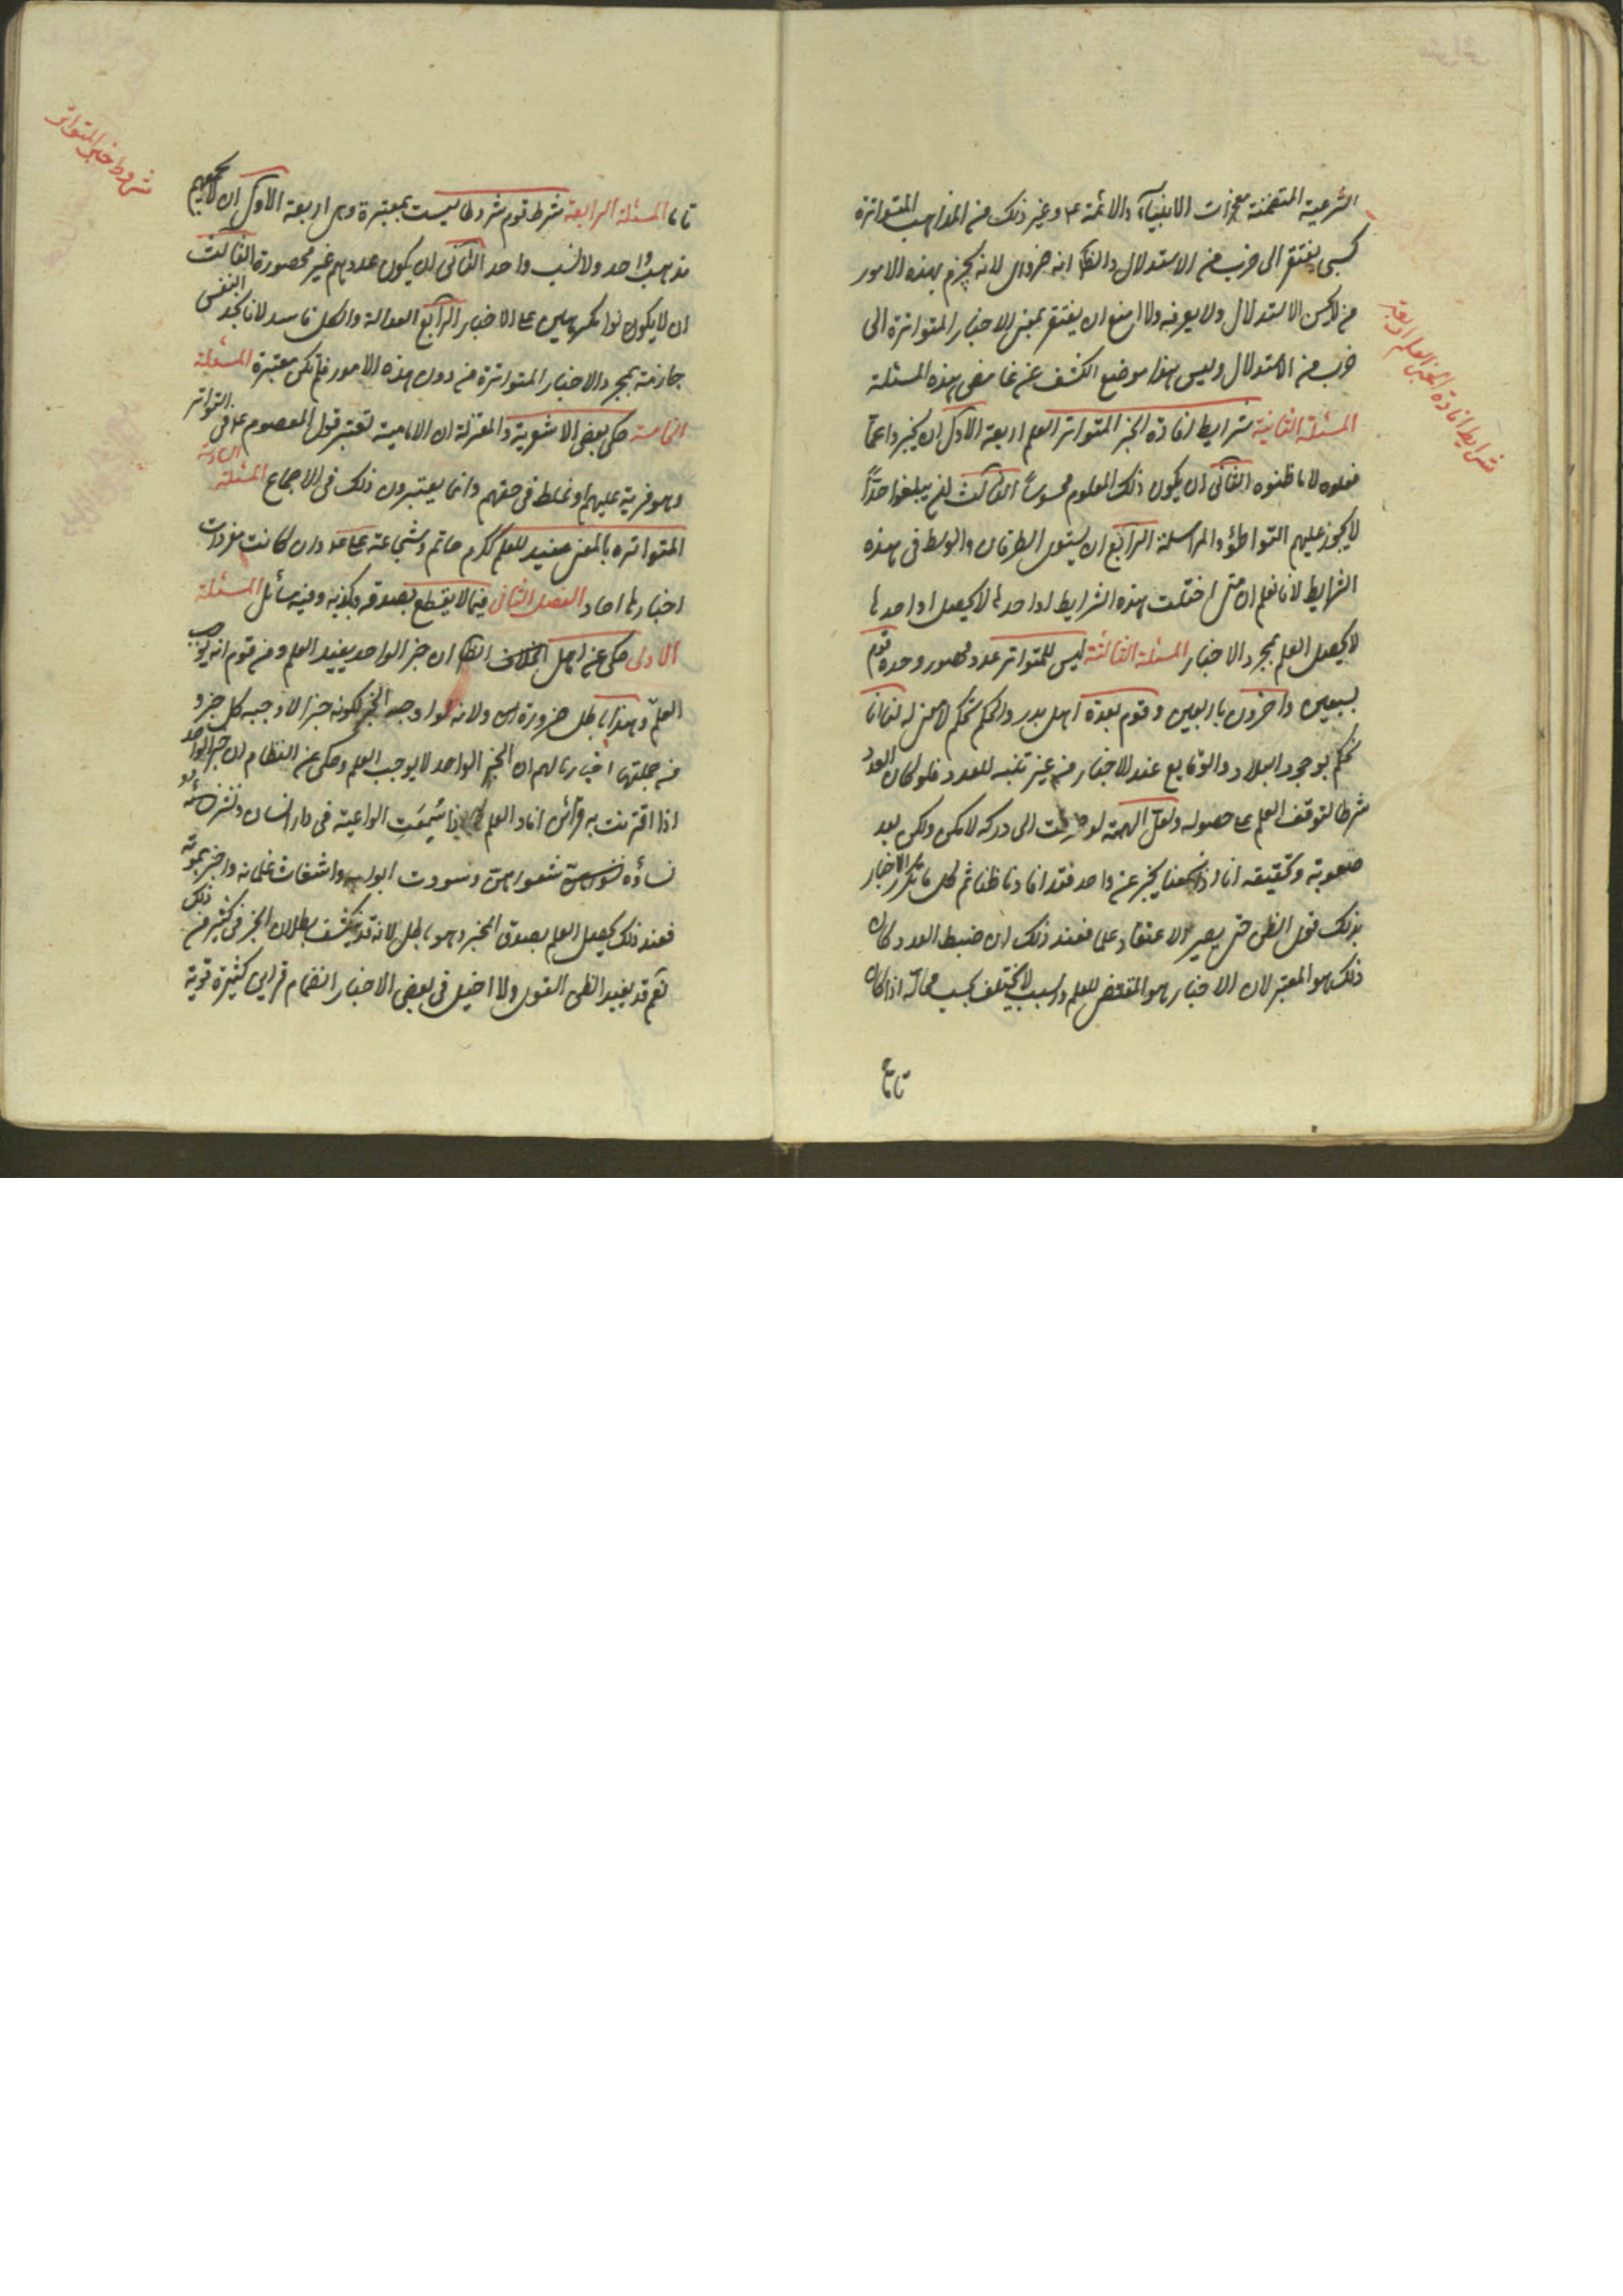 الشرعية المتضمنة معجزات الانبياء والائمة ع وغير ذلك من المذاهب المتواترة
كسبى يفتقر الى ضرب من الاستدلال والظ انه ضرورى لانه يجزم بهذه الامور
من لا يحسن الاستدلال ولا يعرفه ولا امنع ان يفتقر بعض الاخبار المتواترة الى
ضرب من الاستدلال وليس هذا موضع الكشف عن غامض هذه المسئلة
المسئلة الثانية شرايط افادة الخبر المتواتر العلم اربعة الاول ان يخبروا عما
علموه لا ما ظنوه الثانى ان يكون ذلك المعلوم محسوساً الثالث ان يبلغوا حدّاً
لا يجوز عليهم التواطؤ والمراسلة الرابع ان يستوى الطرفان والوسط فى هذه
الشرايط لانا نعلم ان متى اختلت هذه الشرايط او احدها لا يحصل او احدها
لا يحصل العلم بمجرد الاخبار المسئلة الثالثة ليس للمتواتر عدد محصور وحده قوم
بسبعين واخرون باربعين وقوم بعدة اهل بدر والحكم تحكم لا معنى له لنا انا
نحكم بوجود البلاد والوقايع عند الاخبار من غير تنبه للعدد فلو كان العدد
شرطا لتوقف العلم على حصوله ولعل الهمة لو صرفت الى دركه لامكن ولكن بعد
صعوبة وتحقيقه انا اذا سمعنا بخبر عن واحد فقد افادنا ظنا ثم كل ما تكرر الاخبار
بذلك قوى الظن حتى يصير الاعتقاد علما فعند ذلك ان ضبط العدد كان
ذلك هو المعتبر لان الاخبار هو المقتضى للعلم والسبب لا يختلف بحسب محاله اذا كان
تاما
شرايط افادة الخبر العلم اربعة
تاما المسئلة الرابعة شرط قوم شروطا ليست بمعتبرة وهى اربعة الاول ان لا يجمعهم
مذهب واحد ولا نسب واحد الثانى ان يكون عددهم غير محصورة الثالث
ان لا يكونوا مكرهين على الاخبار الرابع العدالة والكل فاسد لانا نجد النفس
جازمة بمجرد الاخبار المتواترة من دون هذه الامور فلم تكن معتبرة المسئلة
الخامسة حكى بعض الاشعرية والمعتزلة ان الامامية تعتبر قول المعصوم ع فى التواتر
وهو فرية عليهم او غلط فى حقهم وانما يعتبرون ذلك فى الاجماع المسئلة السادسة
المتواتره بالمعنى مفيد للعلم ككرم حاتم وشجاعة على ع وان كانت مفردات
اخبارها احاد الفصل الثانى فيما لا يقطع بصدقه وكذبه وفيه مسائل المسئلة
الاولى حكى عن اهل الظ ان خبر الواحد يفيد العلم ومن قوم انه يوجب
العلم وهذا باطل ضرورة ولانه لو اوجبه الخبر لكونه خبرا لاوجبه كل خبر و
من جملتها اخبارنا لهم ان الخبر الواحد لا يوجب العلم وحكى عن النظام ان خبر الواحد
اذا اقترنت به قرائن افاد العلم كما اذا سُمِعَتِ الواعية فى دار انسان
نساؤه شعورهن وسودت ابوابه واشقات غلمانه واخبر بموته
فعند ذلك يحصل العلم بصدق المخبر وهو باطل لانه قد ينكشف بطلان الخبر فى كثير من ذلك
نعم قد يفيد الظن القوى ولا احيل فى بعض الاخبار انضمام قراين كثيرة قوية
شروط خبر المتواتر